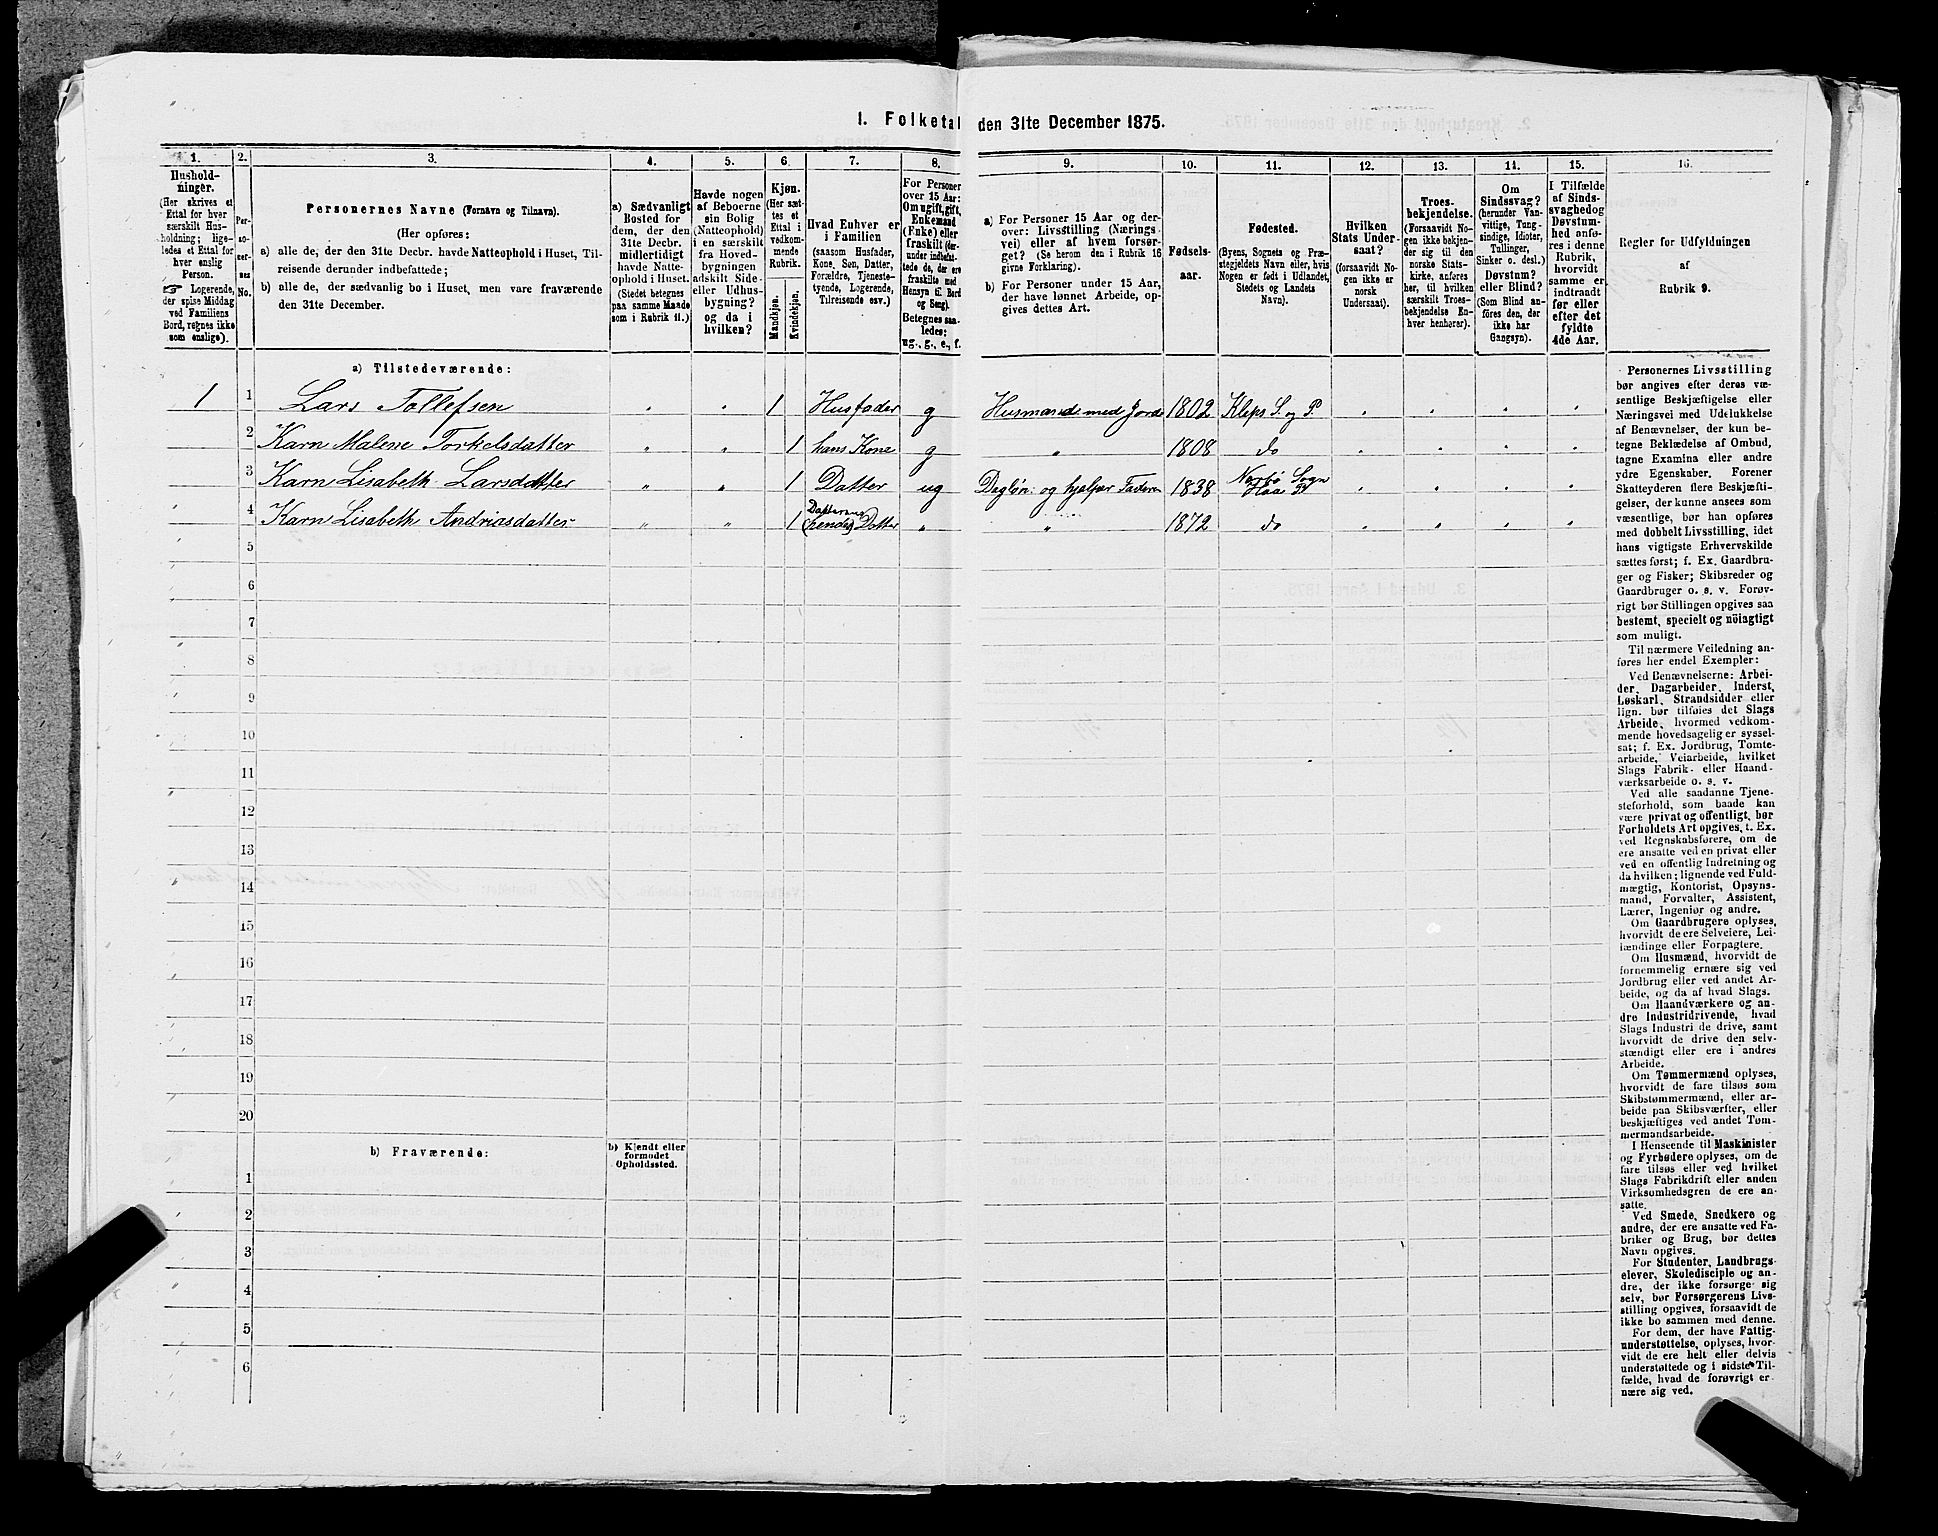 1. Folketal den 31te December 1875.
1. 2. 3. 4. 5. 6. 7. 8. 9. 10. 11. 12. 13. 14. 15. 16.
Hushold-
ninger.
(Her skrives et
Ettal for hver
særskilt Hus-
holdning; lige-
ledes et Ettal for
hver enslig
Person.
☞ Logerende,
der spise Middag
ved Familiens
Bord, regnes ikke
som enslige).
Per-
so-
ner-
nes
No.
Personernes Navne (Fornavn og Tilnavn).
(Her opføres:
a) alle de, der den 31te Decbr. havde Natteophold i Huset, Til-
reisende derunder indbefattede;
b) alle de, der sædvanlig bo i Huset, men vare fraværende
den 31te December.
a) Sædvanligt
Bosted for
dem, der den
31te Decbr.
midlertidigt
havde Natte-
ophold i Huset.
(Stedet betegnes
paa samme Maade
som i Rubrik 11.)
Havde nogen
af Beboerne
sin Bolig
(Natteophold)
i en særskilt
fra Hoved-
bygningen
adskilt Side-
eller Udhus-
bygning?
og da i
hvilken?
Kjøn.
(Her sæt-
tes et
Ettal i
vedkom-
mende
Rubrik.
Mandkjøn.
Kvindekjøn.
Hvad Enhver er
i Familien
(saasom Husfader,
Kone, Søn, Datter,
Forældre, Tjeneste-
tyende, Logerende,
Tilreisende osv.)
For Personer
over 15 Aar:
Om ugift, gift,
Enkemand
(Enke) eller
fraskilt (der-
under indbefat-
tede de, der ere
fraskilte med
Hensyn til Bord
og Seng).
Betegnes saa-
ledes:
ug., g., e., f.
a) For Personer 15 Aar og der-
over: Livsstilling (Nærings-
vei) eller af hvem forsør-
get? (Se herom den i Rubrik 16
givne Forklaring).
b) For Personer under 15 Aar,
der have lønnet Arbeide, op-
gives dettes Art.
Fødsels-
aar.
Fødested.
(Byens, Sognets og Præ-
stegjeldets Navn eller, hvis
Nogen er født i Udlandet,
Stedets og Landets
Navn).
Hvilken
Stats Under-
saat?
(forsaavidt No-
gen ikke er
norsk
Undersaat).
Troes-
bekjendelse.
(Forsaavidt No-
gen ikke bekjen-
der sig til den
norske Stats-
kirke, anføres
her, til hvilken
særskilt Troes-
bekjendelse En-
hver henhører).
Om
Sindssvag?
(herunder Van-
vittige, Tung-
sindige, Idioter,
Tullinger,
Sinker o. desl.)
Døvstum?
eller Blind?
(Som Blind an-
føres den, der
ikke har
Gangsyn).
I Tilfælde
af Sinds-
svaghed og
Døvstum-
hed anfø-
res i denne
Rubrik,
hvorvidt
samme er
indtraadt
før eller
efter det
fyldte
4de Aar.
Regler for Udfyldningen
af
Rubrik 9.
a) Tilstedeværende:
1 1 Lars Tollefsen " " 1 Husfader g Husmand med Jord 1802 Kleps S. og P " " " "
2 Karn Malene Torkelsdatter " " 1 hans Kone g " 1808 do " " " "
3 Karn Lisabeth Larsdatter " " 1 Datter ug Dagløn: og hjelper Faderen 1838 Nærbø Sogn Haa P " " " "
4 Karn Lisabeth Andriasdatter " " 1 Datter " " 1872 do " " " "
5
6
7
8
9
10
11
12
13
14
15
16
17
18
19
20
b) Fraværende:
b) Kjendt eller
formodet
Opholdssted.
1
2
3
4
5
6
Personernes Livsstilling
bør angives efter deres væ-
sentlige Beskjæftigelse eller
Næringsvei med Udelukkelse
af Benævnelser, der kun be-
tegne Beklædelse af Ombud,
tagne Examina eller andre
ydre Egenskaber. Forener
Skatteyderen flere Beskjæfti-
gelser, der kunne ansees som
væsentlige, bør han opføres
med dobbelt Livsstilling, idet
hans vigtigste Erhvervskilde
sættes først; f. Ex. Gaardbru-
ger og Fisker; Skibsreder og
Gaardbruger o. s. v. Forøv-
rigt bør Stillingen opgives saa
bestemt, specielt og nöiagtigt
som muligt.
Til nærmere Veiledning an-
føres her endel Exempler:
Ved Benævnelserne: Arbei-
der, Dagarbeider, Inderst,
Løskarl, Strandsidder eller
lign. bør tilføies det Slags
Arbeide, hvormed vedkom-
mende hovedsagelig er syssel-
sat; f. Ex. Jordbrug, Tomte-
arbeide, Veiarbeide, hvilket
Slags Fabrik- eller Haand-
værksarbeide o. s. v.
Ved alle saadanne Tjene-
steforhold, som baade kan
være privat og offentligt, bør
Forholdets Art opgives, t. Ex.
ved Regnskabsførere, om de
ere ansatte ved en privat eller
ved en offentlig Indretning og
da hvilken; lignende ved Fuld-
mægtig, Kontorist, Opsyns-
mand, Forvalter, Assistent,
Lærer, Ingeniør og andre.
Om Gaardbrugere oplyses,
hvorvidt de ere Selveiere, Lei-
lændinge eller Forpagtere.
Om Husmænd, hvorvidt de
fornemmelig ernære sig ved
Jordbrug eller ved andet Ar-
beide, og da af hvad Slags.
Om Haandværkere og an-
dre Industridrivende, hvad
Slags Industri de drive, samt
hvorvidt de drive den selv-
stændigt eller ere i andres
Arbeide.
Om Tømmermænd oplyses,
hvorvidt de fare tilsøs som
Skibstømmermænd, eller ar-
beide paa Skibsværfter, eller
beskjæftiges ved andet Tøm-
mermandsarbeide.
I Henseende til Maskinister
og Fyrbødere oplyses, om de
fare tilsøs eller ved hvilket
Slags Fabrikdrift eller anden
Virksomhedsgren de ere an-
satte.
Ved Smede, Snedkere og
andre, der ere ansatte ved Fa-
briker og Brug, bør dettes
Navn opgives.
For Studenter, Landbrugs-
elever, Skoledisciple og an-
dre, der ikke forsørge sig
selv, bør Forsørgerens Livs-
stilling opgives, forsaavidt de
ikke bo sammen med denne.
For dem, der have Fattig-
understøttelse, oplyses, hvor-
vidt de ere helt eller delvis
understøttede og i sidste Til-
fælde, hvad de forøvrigt er-
nære sig ved.